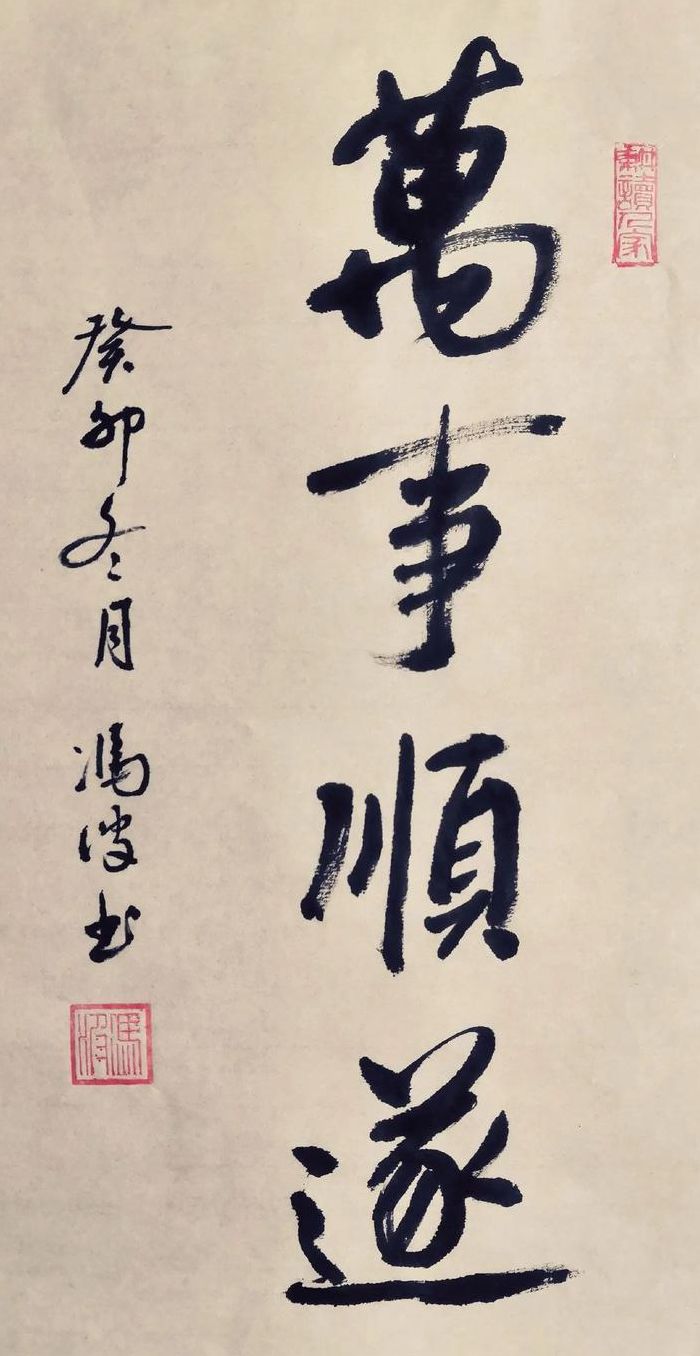 萬事順遂
癸卯冬月 馮俊书